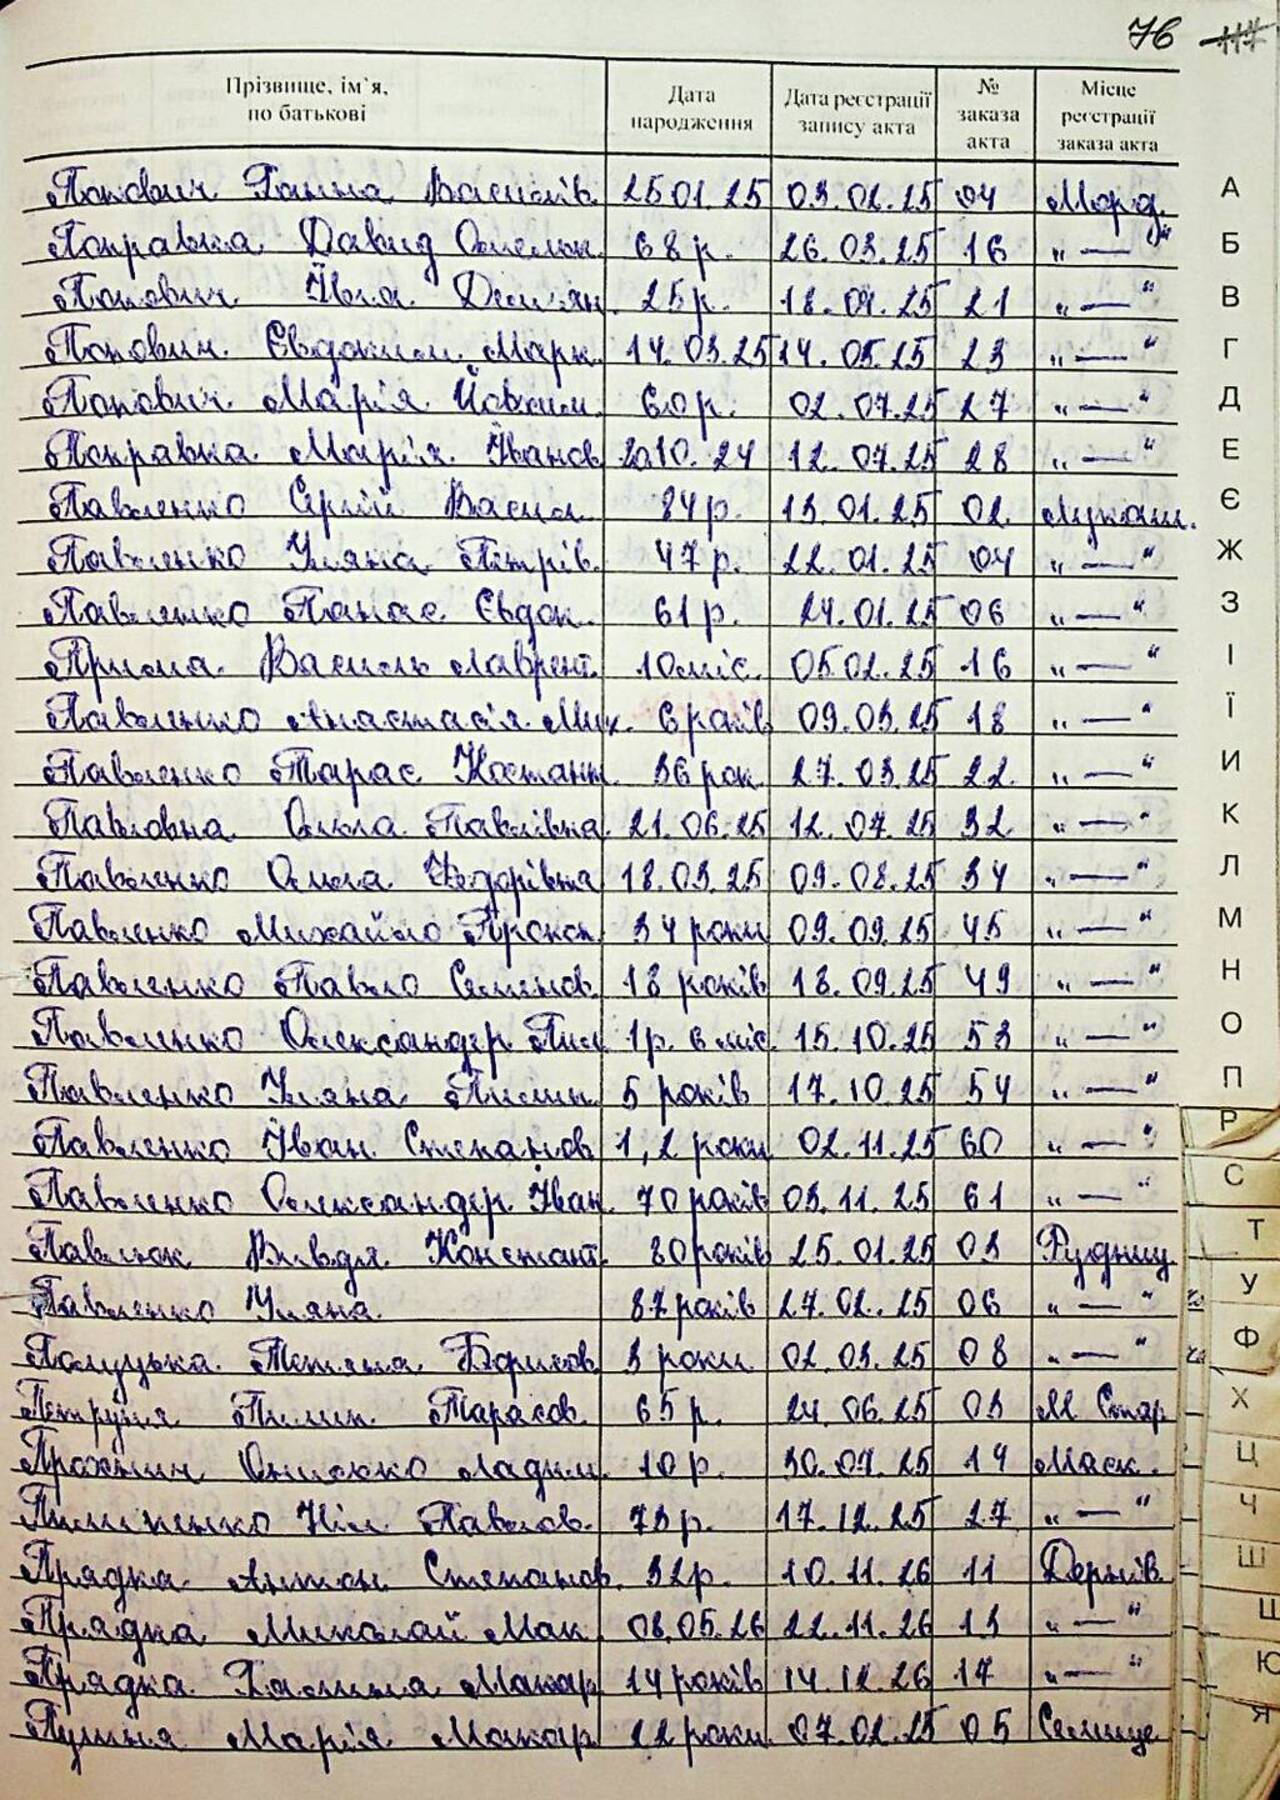 76 117
Прізвище, ім`я, по батькові Дата народження Дата реєстрації запису акта № заказа акта Місце реєстрації заказа акта
Попович Ганна Василів. 25.01.25 03.02.25 04 Морд.
Поправка Давид Омелян. 68 р. 26.03.25 16 „—“
Попович Ївга Дем'ян. 25 р. 18.04.25 21 „—“
Попович Євдоким Марк. 14.03.25 14.05.25 23 „—“
Попович Марія Йовхим. 60 р. 02.07.25 27 „—“
Поправка Марія Іванов. 20.10.24 12.07.25 28 „—“
Павленко Сергій Васил. 84 р. 13.01.25 02 Лукаш.
Павленко Уляна Петрів. 47 р. 22.01.25 04 „—“
Павленко Панас Євдок. 61 р. 24.01.25 06 „—“
Прима Василь Лаврент. 10 міс. 05.02.25 16 „—“
Павленко Анастасія Мих. 6 років 09.03.25 18 „—“
Павленко Тарас Костант. 36 рок 27.03.25 22 „—“
Павловна Ольга Павлівна 21.06.25 12.07.25 32 „—“
Павленко Ольга Федорівна 18.03.25 09.08.25 34 „—“
Павленко Михайло Прокоп. 34 роки 09.09.25 45 „—“
Павленко Павло Семенов. 18 років 18.09.25 49 „—“
Павленко Олександер Пил 1р. 6 міс. 15.10.25 53 „—“
Павленко Уляна Пилип. 5 років 17.10.25 54 „—“
Павленко Іван Степанов. 1,2 роки 02.11.25 60 „—“
Павленко Олександер Іван. 70 років 03.11.25 61 „—“
Павлюк Вивдя Констант. 80 років 25.01.25 03 Рудниц.
Павленко Уляна. 87 років 27.02.25 06 „—“
Полуцька Тетяна Борисов. 3 роки 02.03.25 08 „—“
Пилип Тарасов. 65 р. 24.06.25 03 М Стар
Онисько Ладим. 10 р. 30.07.25 14 Маск.
Пилипенко Ніл Павлов. 73 р. 17.12.25 27 „—“
Прядка Антон Степанов. 32р. 10.11.26 11 Дернів.
Прядка Миколай Мак. 08.05.26 22.11.26 13 „—“
Прядка Галина Макар. 14 років 14.12.26 17 „—“
Пушня Марія Макар 22 роки 07.02.25 05 Селище
А
Б
В
Г
Д
Е
Є
Ж
З
І
Ї
Й
К
Л
М
Н
О
П
Р
С
Т
У
Ф
Х
Ц
Ч
Ш
Щ
Ю
Я